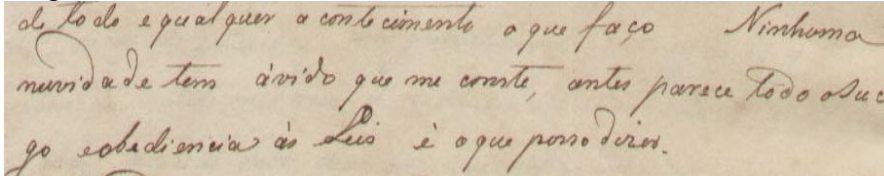 de todo e qualquer acontecimento o que faço Ninhuma
nuvidade tem ávido que me conste, antes parece todo o suc
go e obediencia ás Leis é o que posso dizer.